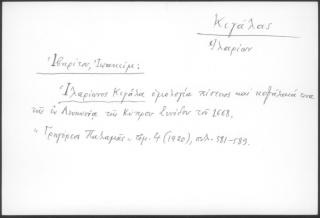 Κιγάλας
Ἱλαρίων
Ἰβηρίτου, Ἰωακείμ:
Ἱλαρίωνος Κιγάλα ὁμολογία πίστεως καὶ κεφάλαιά τινα
τῆς ἐν Λευκωσίᾳ τῆς Κύπρου Συνόδου τοῦ 1668.
"Γρηγόριος Παλαμᾶς" τόμ. 4 (1920), σελ. 581-589.